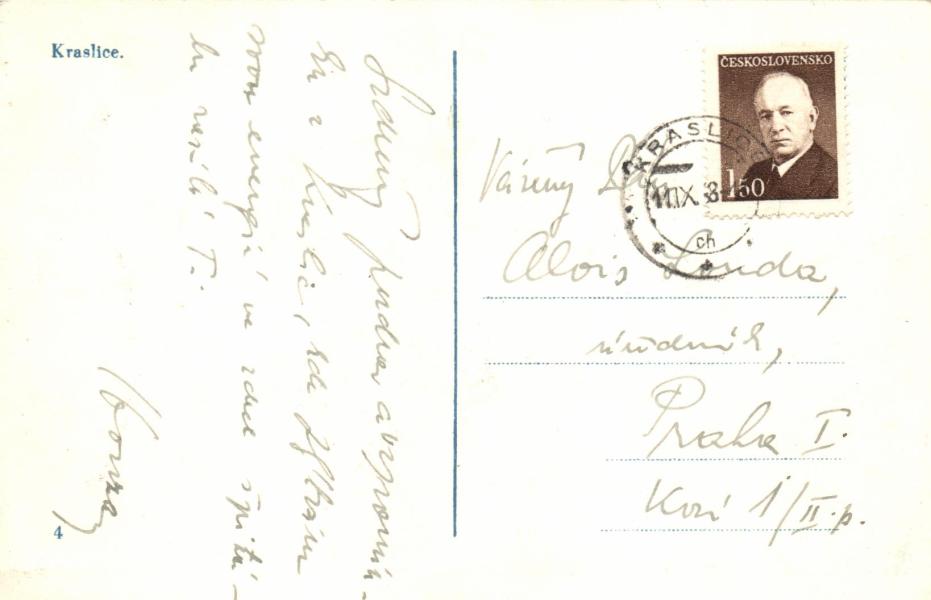 Kraslice.
Srdečný pozdrav a vzpomín-
ku z Kraslic, kde
novou energii ve zdej. špitá-
le T.
Honza
4
ČESKOSLOVENSKO
1.50
KRASLICE
11.IX.
ch
Vážený
Alois Londa,
úředník,
Praha I.
Kozí 1/II.p.